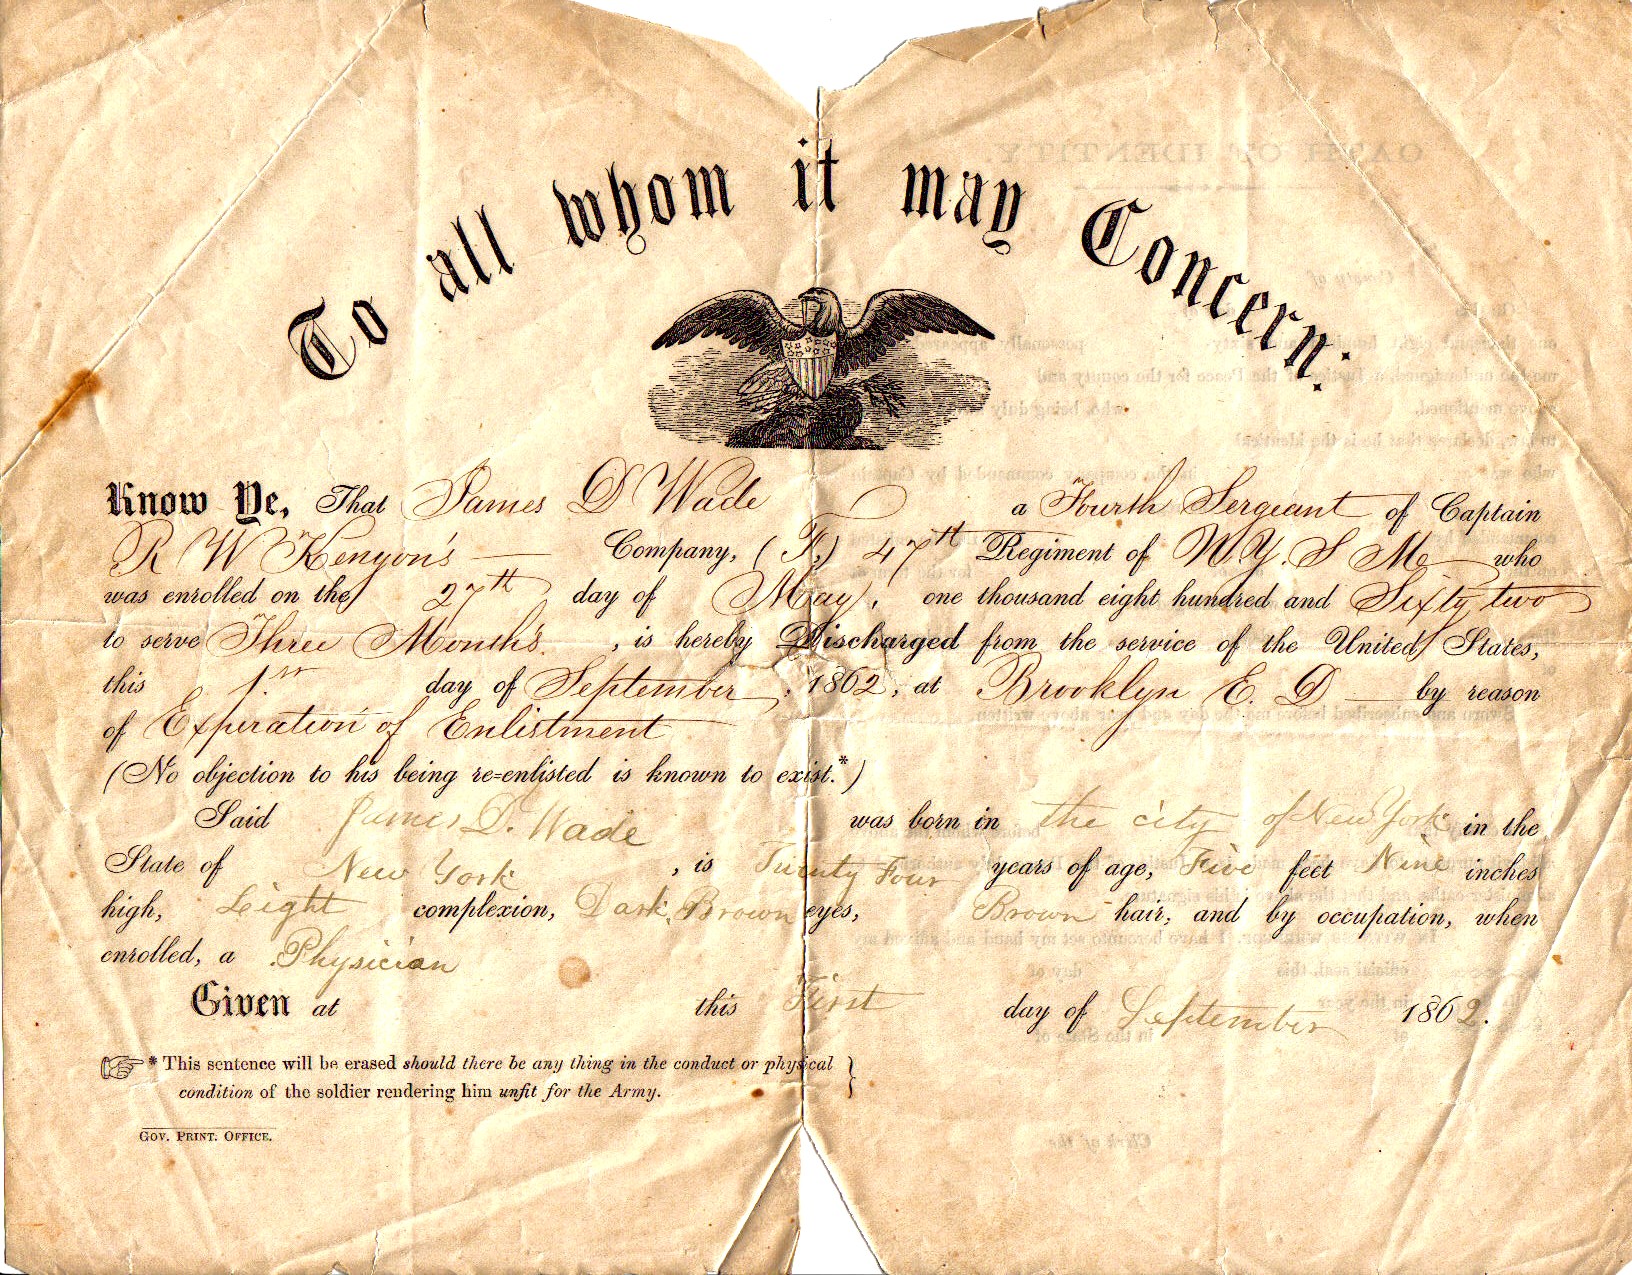 To all whom it may Concern:
Know Ye, That James D Wade a Fourth Sergeant of Captain
R W Kenyon's Company, (F,) 47th Regiment of N.Y. S M who
was enrolled on the 27th day of May, one thousand eight hundred and Sixty two
to serve Three Months. , is hereby Discharged from the service of the United States,
this 1st day of September, 1862, at Brooklyn E. D by reason
of Expiration of Enlistment
(No objection to his being re=enlisted is known to exist.*)
Said James D. Wade was born in the city of New York in the
State of New York , is Twenty Four years of age, Five feet Nine inches
high, Light complexion, Dark Brown eyes, Brown hair, and by occupation, when
enrolled, a Physician
Given at this First day of September 1862.
* This sentence will be erased should there be any thing in the conduct or physical
condition of the soldier rendering him unfit for the Army.
GOV. PRINT. OFFICE.